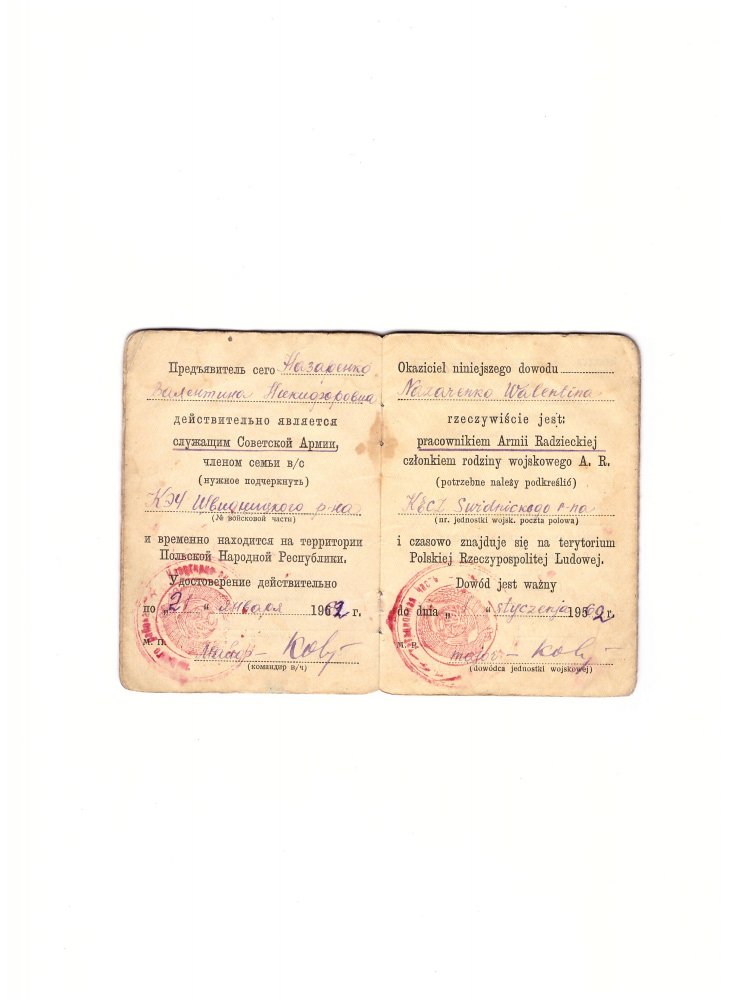 Предъявитель сего Назаренко
Валентина Никифоровна
действительно является
служащим Советской Армии,
членом семьи в/с
(нужное подчеркнуть)
КЭЧ Швидницкого р-на
(№ войсковой части)
и временно находится на территории
Польской Народной Республики.
Удостоверение действительно
по „21“ января 1962 г.
М. П. Майор
(командир в/ч)
Okaziciel niniejszego dowodu
Nazarenko Walentina
rzeczywiście jest:
pracownikiem Armii Radzieckiej
członkiem rodziny wojskowego A. R.
(potrzebne należy podkreślić)
KECZ Swidnickego r-na
(nr. jednostki wojsk. poczta polowa)
i czasowo znajduje się na terytorium
Polskiej Rzeczypospolitej Ludowej.
Dowód jest ważny
do dnia „ “ styczenja 1962 r.
M. P. major
(dowódca jednostki wojskowej)